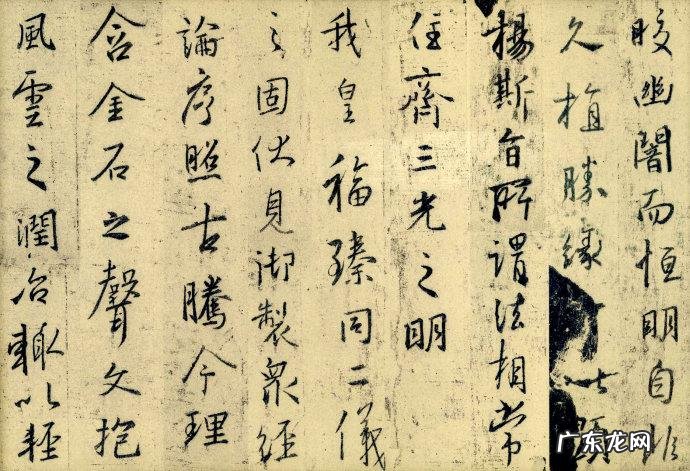 皎幽闇而恒明自非
久植勝緣以顯
揚斯旨所謂法相常
住齊三光之明
我皇福臻同二儀
之固伏見御製眾經
論序照古騰今理
含金石之聲文抱
風雲之潤治輒以輕
广东龙网